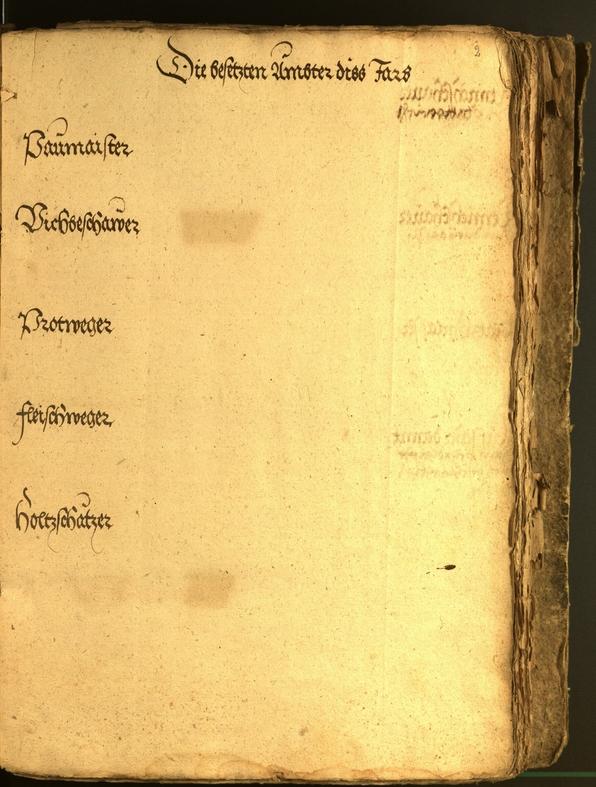 2
Die besetzten Ämbter diss Jars
Paumaister
Vichbeschawer
Protweger
fleischweger
Holtzschätzer